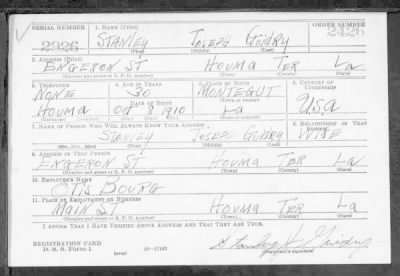 SERIAL NUMBER 1. NAME (Print) ORDER NUMBER
2926 STANLEY JOSEPH GUIDRY 2326
(First) (Middle) (Last)
2. ADDRESS (Print)
ENGERON ST HOUMA TER LA
(Number and street or R. F. D. number) (Town) (County) (State)
3. TELEPHONE 4. AGE IN YEARS 5. PLACE OF BIRTH 6. COUNTRY OF CITIZENSHIP
NONE 30 MONTEGUT
DATE OF BIRTH (Town or county)
HOUMA Oct 8 1910 La USA
(Exchange) (Number) (Mo.) (Day) (Yr.) (State or country)
7. NAME OF PERSON WHO WILL ALWAYS KNOW YOUR ADDRESS 8. RELATIONSHIP OF THAT PERSON
STANLEY JOSEPH GUIDRY WIFE
(Mr., Mrs., Miss) (First) (Middle) (Last)
9. ADDRESS OF THAT PERSON
ENGERON ST HOUMA TER LA
(Number and street or R. F. D. number) (Town) (County) (State)
10. EMPLOYER'S NAME
OTIS BOURG
11. PLACE OF EMPLOYMENT OR BUSINESS
MAIN ST HOUMA TER LA
(Number and street or R. F. D. number) (Town) (County) (State)
I AFFIRM THAT I HAVE VERIFIED ABOVE ANSWERS AND THAT THEY ARE TRUE.
REGISTRATION CARD
D. S. S. Form 1 (over) 16—17105 Stanley J. Guidry